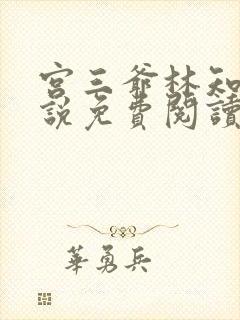 宮三爺林知
說免費閱讀
華勇兵